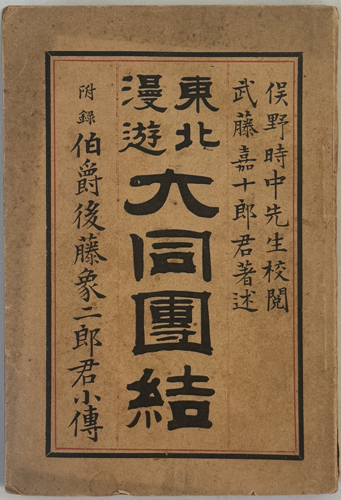 俣野時中先生校閲
武藤嘉十郎君著述
東北
漫遊
大同團結
附録 伯爵後藤象二郎君小傳